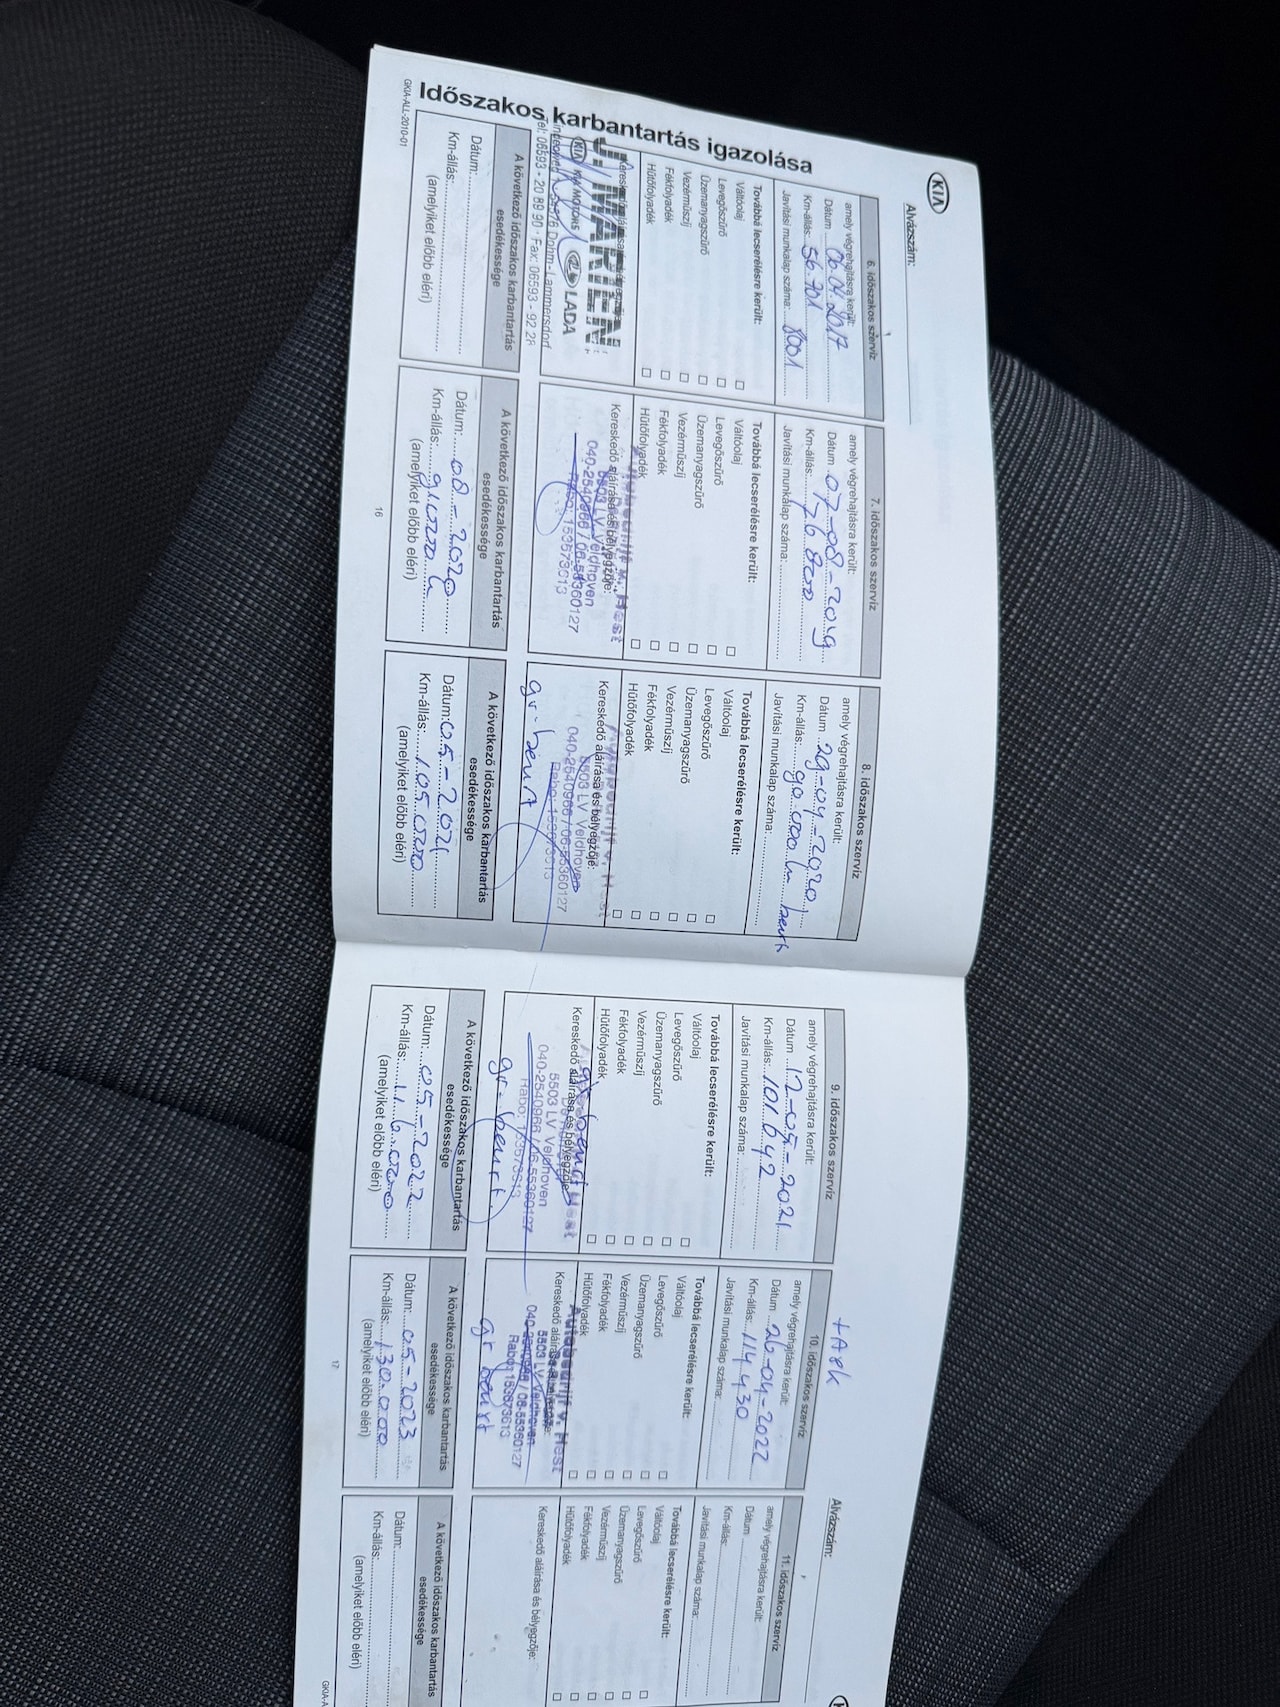 Időszakos karbantartás igazolása
KIA
Alvázszám:
6. időszakos szerviz
amely végrehajtásra került:
Dátum 06.04.2017
Km-állás: 56.701
Javítási munkalap száma: 8001
Továbbá lecserélésre került:
Váltóolaj
Levegőszűrő
Üzemanyagszűrő
Vezérműszíj
Fékfolyadék
Hűtőfolyadék
MARIEN
KIA KIA MOTORS LADA
54576 Dohm-Lammersdorf
Tel: 06593 - 20 89 90 · Fax: 06593 - 92 28
A következő időszakos karbantartás
esedékessége
Dátum:
Km-állás:
(amelyiket előbb eléri)
GKIA-ALL-2010-01
7. időszakos szerviz
amely végrehajtásra került:
Dátum 07-08-2019
Km-állás: 76800
Javítási munkalap száma:
Továbbá lecserélésre került:
Váltóolaj
Levegőszűrő
Üzemanyagszűrő
Vezérműszíj
Fékfolyadék
Hűtőfolyadék
Kereskedő aláírása és bélyegzője:
Autobedrijf v. Hest
5503 LV Veldhoven
040-2540966 / 06-55360127
Rabo: 153573613
A következő időszakos karbantartás
esedékessége
Dátum: 08-2020
Km-állás: 91.000
(amelyiket előbb eléri)
16
8. időszakos szerviz
amely végrehajtásra került:
Dátum 29-04-2020
Km-állás: 90.000 km beurt
Javítási munkalap száma:
Továbbá lecserélésre került:
Váltóolaj
Levegőszűrő
Üzemanyagszűrő
Vezérműszíj
Fékfolyadék
Hűtőfolyadék
Kereskedő aláírása és bélyegzője:
5503 LV Veldhoven
040-2540966 / 06-55360127
Rabo: 153573613
gr-beurt
A következő időszakos karbantartás
esedékessége
Dátum: 05-2021
Km-állás: 105.000
(amelyiket előbb eléri)
9. időszakos szerviz
amely végrehajtásra került:
Dátum 12-05-2021
Km-állás: 101642
Javítási munkalap száma:
Továbbá lecserélésre került:
Váltóolaj
Levegőszűrő
Üzemanyagszűrő
Vezérműszíj
Fékfolyadék
Hűtőfolyadék
Kereskedő aláírása és bélyegzője:
5503 LV Veldhoven
040-2540966 / 06-55360127
Rabo: 153573613
gr-beurt
A következő időszakos karbantartás
esedékessége
Dátum: 05-2022
Km-állás: 116.000
(amelyiket előbb eléri)
+APK
10. időszakos szerviz
amely végrehajtásra került:
Dátum 26-04-2022
Km-állás: 114430
Javítási munkalap száma:
Továbbá lecserélésre került:
Váltóolaj
Levegőszűrő
Üzemanyagszűrő
Vezérműszíj
Fékfolyadék
Hűtőfolyadék
Kereskedő aláírása és bélyegzője:
Autobedrijf v. Hest
5503 LV Veldhoven
040-2540966 / 06-55360127
Rabo: 153573613
gr beurt
A következő időszakos karbantartás
esedékessége
Dátum: 05-2023
Km-állás: 130.000
(amelyiket előbb eléri)
17
Alvázszám:
11. időszakos szerviz
amely végrehajtásra került:
Dátum
Km-állás:
Javítási munkalap száma:
Továbbá lecserélésre került:
Váltóolaj
Levegőszűrő
Üzemanyagszűrő
Vezérműszíj
Fékfolyadék
Hűtőfolyadék
Kereskedő aláírása és bélyegzője:
A következő időszakos karbantartás
esedékessége
Dátum:
Km-állás:
(amelyiket előbb eléri)
GKIA-A